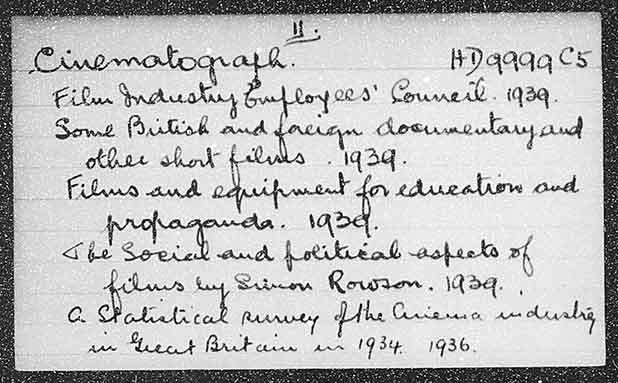 11.
Cinematograph. HD9999 C5
Film Industry Employees' Council. 1939.
Some British and foreign documentary and
other short films. 1939.
Films and equipment for education and
propaganda. 1939.
The Social and political aspects of
films by Simon Rowson. 1939.
A Statistical survey of the Cinema industry
in Great Britain in 1934. 1936.